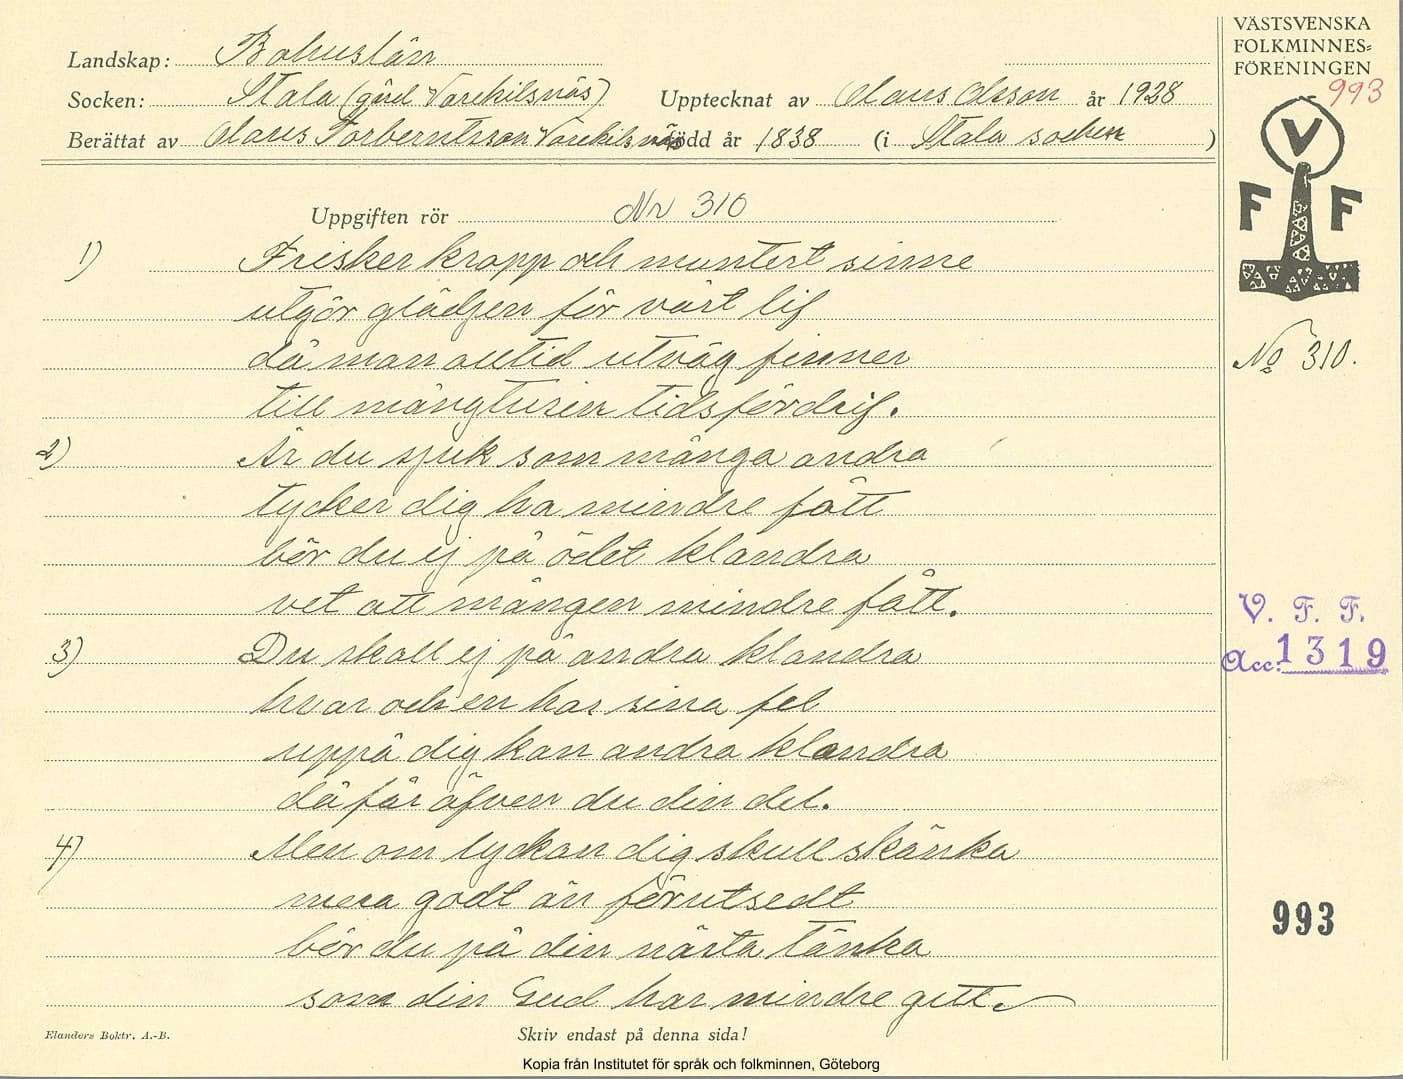 Landskap: Bohuslän
Socken: Stala (gård Varekilsnäs) Upptecknat av Olaus Olsson år 1928
Berättat av Olaus Torberntsson Varekilsnäs född år 1838 (i Stala socken )
Uppgiften rör Nr 310
1) Frisker kropp och muntert sinne
utgör glädjen för vårt lif
då man alltid utväg finner
till mångtusen tidsfördrif.
2) Är du sjuk som många andra
tycker dig ha mindre fått
bör du ej på ödet klandra
vet att mången mindre fått.
3) Du skall ej på andra klandra
hvar och en har sina fel
uppå dig kan andra klandra
då får äfven du din del.
4) Men om lyckan dig skull skänka
mera godt än förutsedt
bör du på din nästa tänka
som din Gud har mindre gett.
Elanders Boktr. A.-B.
Skriv endast på denna sida!
VÄSTSVENSKA
FOLKMINNES=
FÖRENINGEN
993
V
F F
No 310.
V. F. F.
Acc: 1319
993
Kopia från Institutet för språk och folkminnen, Göteborg